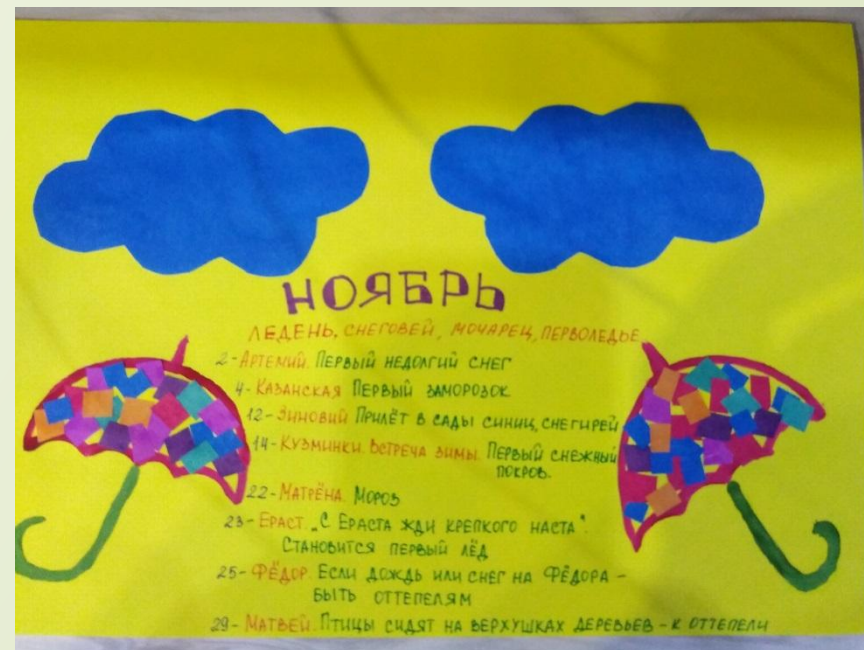 НОЯБРЬ
ЛЕДЕНЬ, СНЕГОВЕЙ, МОЧАРЕЦ, ПЕРВОЛЕДЬЕ
2-АРТЕМИЙ. ПЕРВЫЙ НЕДОЛГИЙ СНЕГ
4-КАЗАНСКАЯ ПЕРВЫЙ ЗАМОРОЗОК
12-ЗИНОВИЙ ПРИЛЁТ В САДЫ СИНИЦ, СНЕГИРЕЙ
14-КУЗМИНКИ. ВСТРЕЧА ЗИМЫ. ПЕРВЫЙ СНЕЖНЫЙ
ПОКРОВ.
22-МАТРЁНА. МОРОЗ
23-ЕРАСТ. „С ЕРАСТА ЖДИ КРЕПКОГО НАСТА".
СТАНОВИТСЯ ПЕРВЫЙ ЛЁД
25-ФЁДОР. ЕСЛИ ДОЖДЬ ИЛИ СНЕГ НА ФЁДОРА -
БЫТЬ ОТТЕПЕЛЯМ
29-МАТВЕЙ. ПТИЦЫ СИДЯТ НА ВЕРХУШКАХ ДЕРЕВЬЕВ - К ОТТЕПЕЛИ